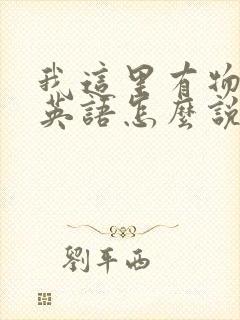 我這里有物
英語怎麼說
劉平西